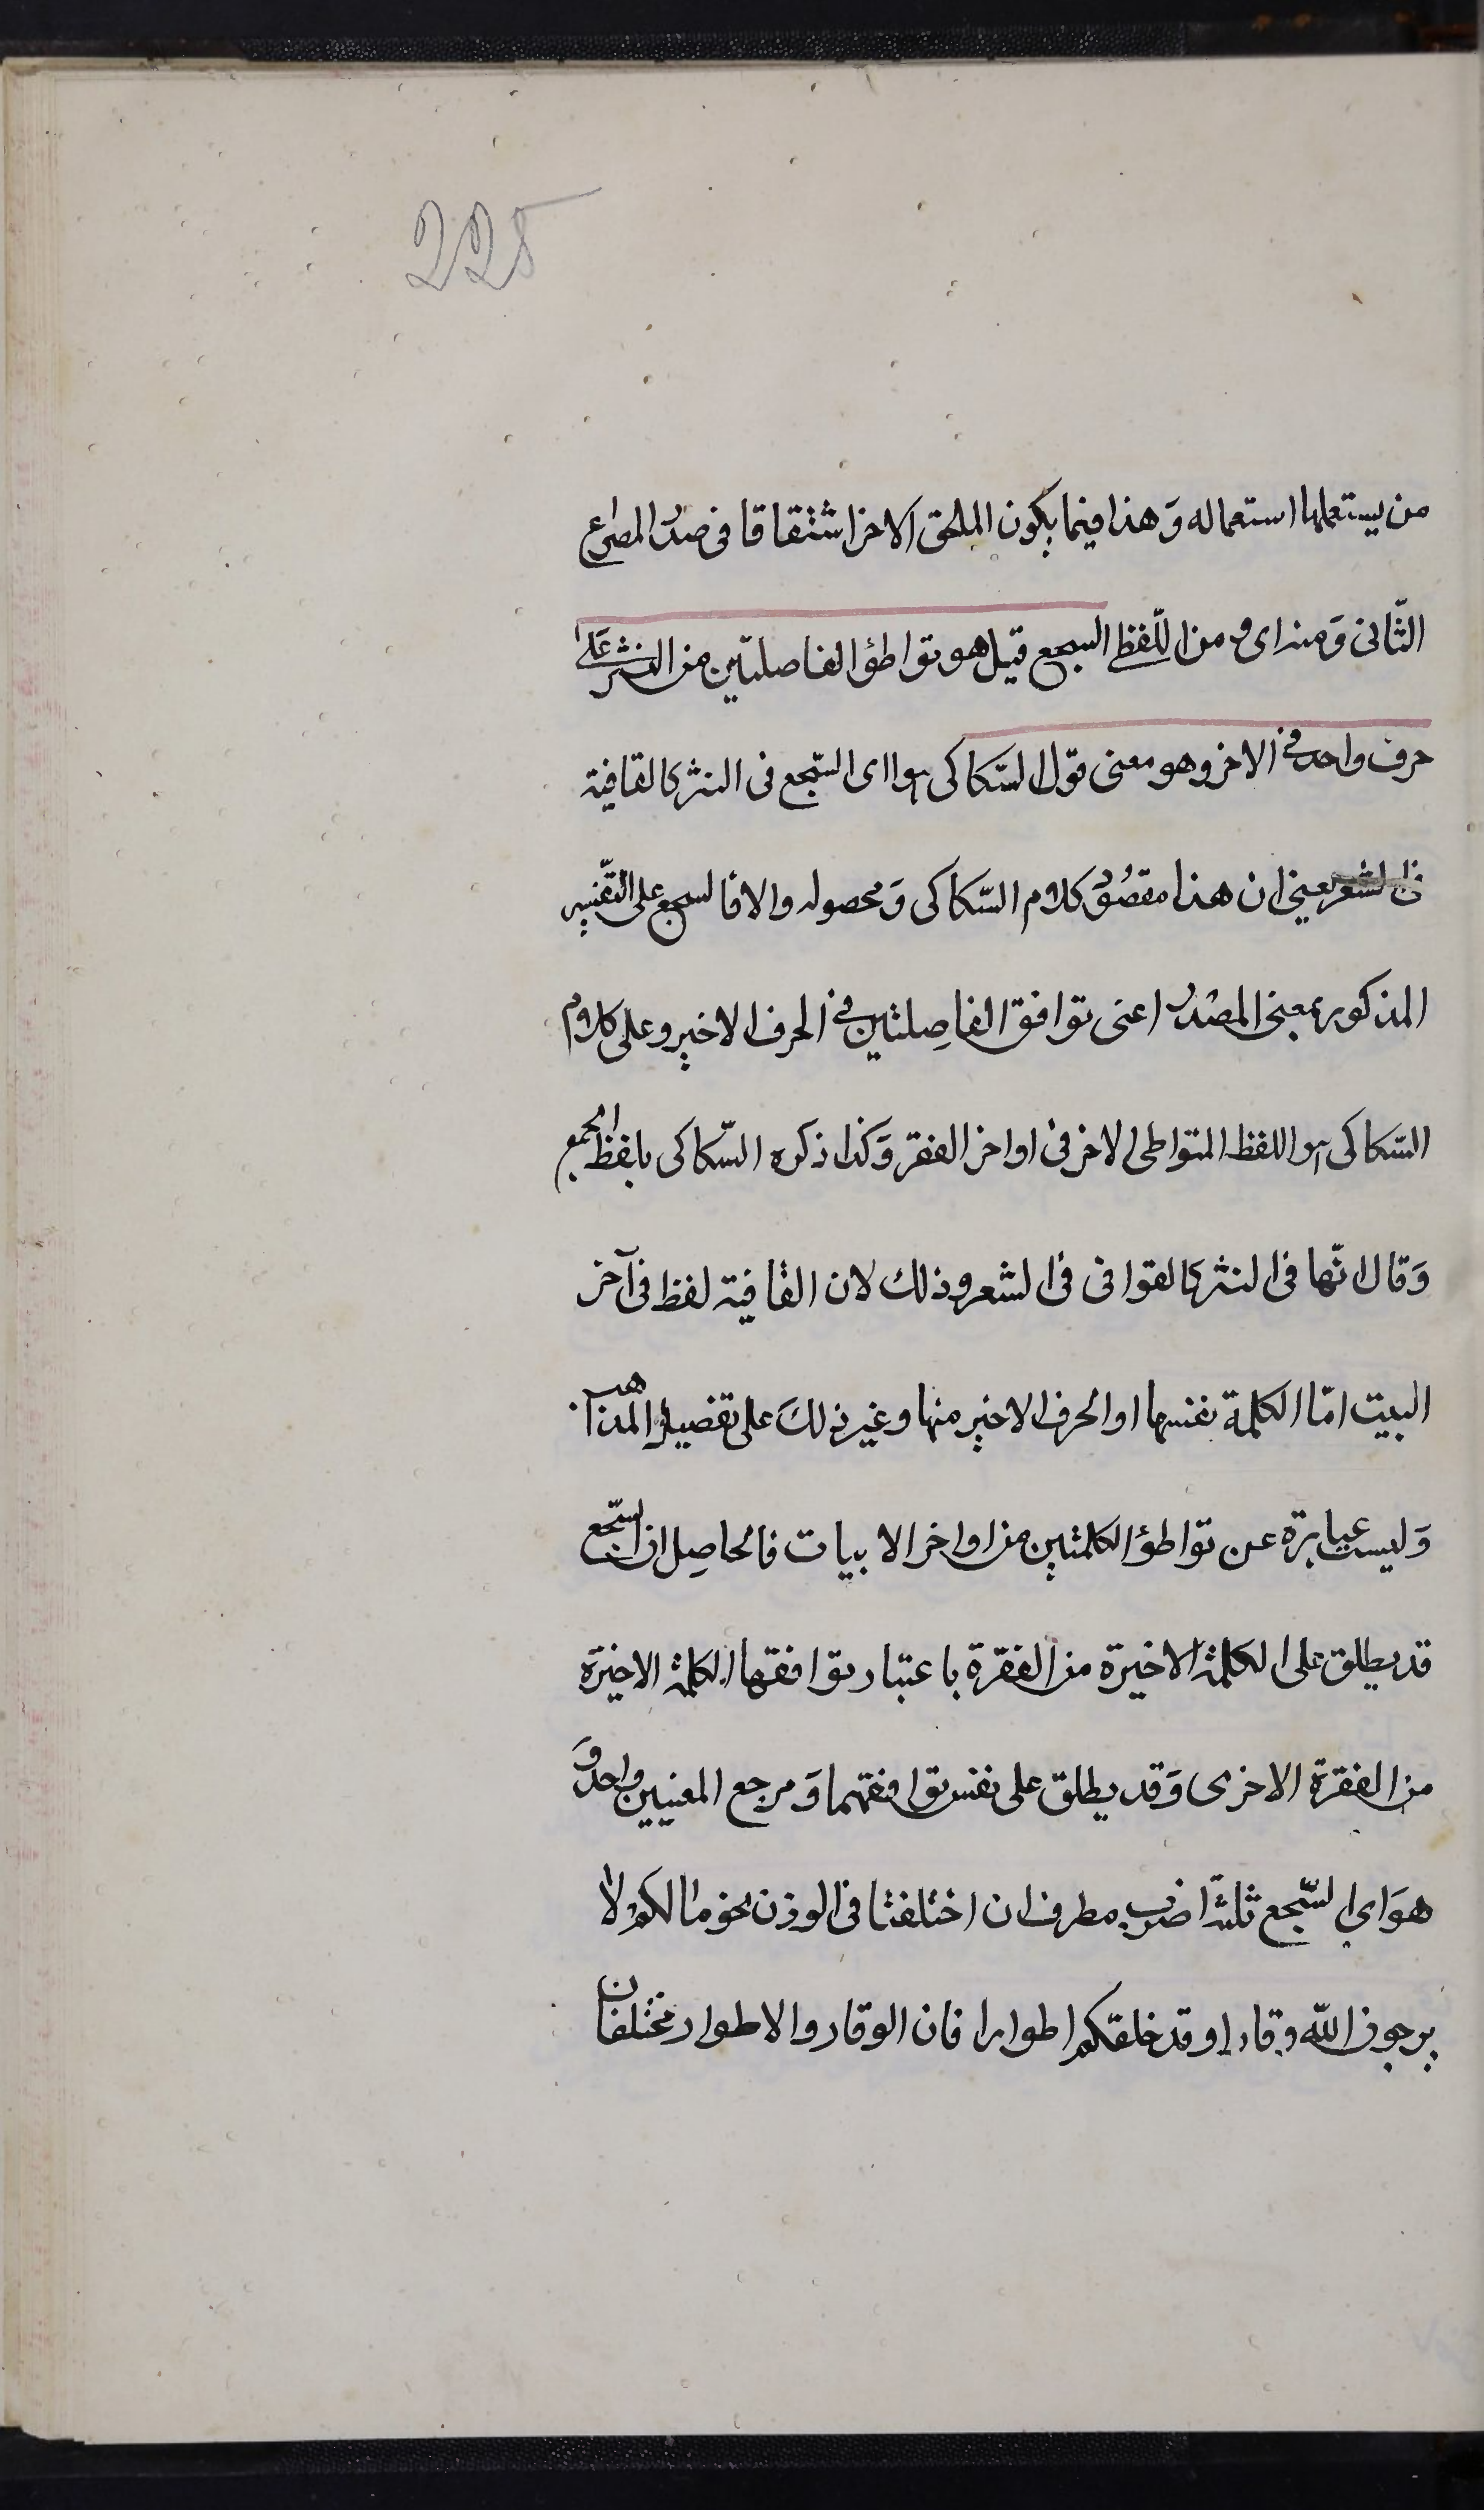 225
من يستعملها استعماله وَهذا فيما يكون الملحق الاخر اشتقاقا في صدر المصراع
الثّانى وَمنه اى و من اللّفظى السجع قيل هو تواطؤ الفاصلتين من النثر عَلى
حرف واحد فى الاخر وهو معنى قول السّكاكى هو اى السّجع فى النثر كالقافية
فى الشعر يعنى ان هذا مقصُود كلام السّكاكى وَمحصوله والا فالسجع على التّفسير
المذكور بمعنى المصْدر اعنى توافق الفاصِلتين فى الحرف الاخير وعلى كلام
السّكاكى هو اللفظ المتواطى الاخر فى اواخر الفقر وَكذا ذكره السّكاكى بلفظ الجمع
وَقال انّها فى النثر كالقوافى فى الشعر وذلك لان القافية لفظ فى آخر
البيت امّا الكلمة نفسها او الحرف الاخير منها وغير ذلكَ على تفصيل المذاهب
وَليست عبارة عن تواطؤ الكلمتين من اواخر الابيات فالحاصِل ان السّجع
قد يطلق على الكلمة الاخيرة من الفقرة باعتبار توافقها الكلمة الاخيرة
من الفقرة الاخرى وَقد يطلق على نفس توافقهما وَمرجع المعنيين واحد وَ
هوَ اى السّجع ثلثة اضرب مطرف ان اختلفتا فى الوزن نحو ما لكم لا
يرجون الله وقارا وقد خلقكم اطوارا فان الوقار والاطوار مختلفان